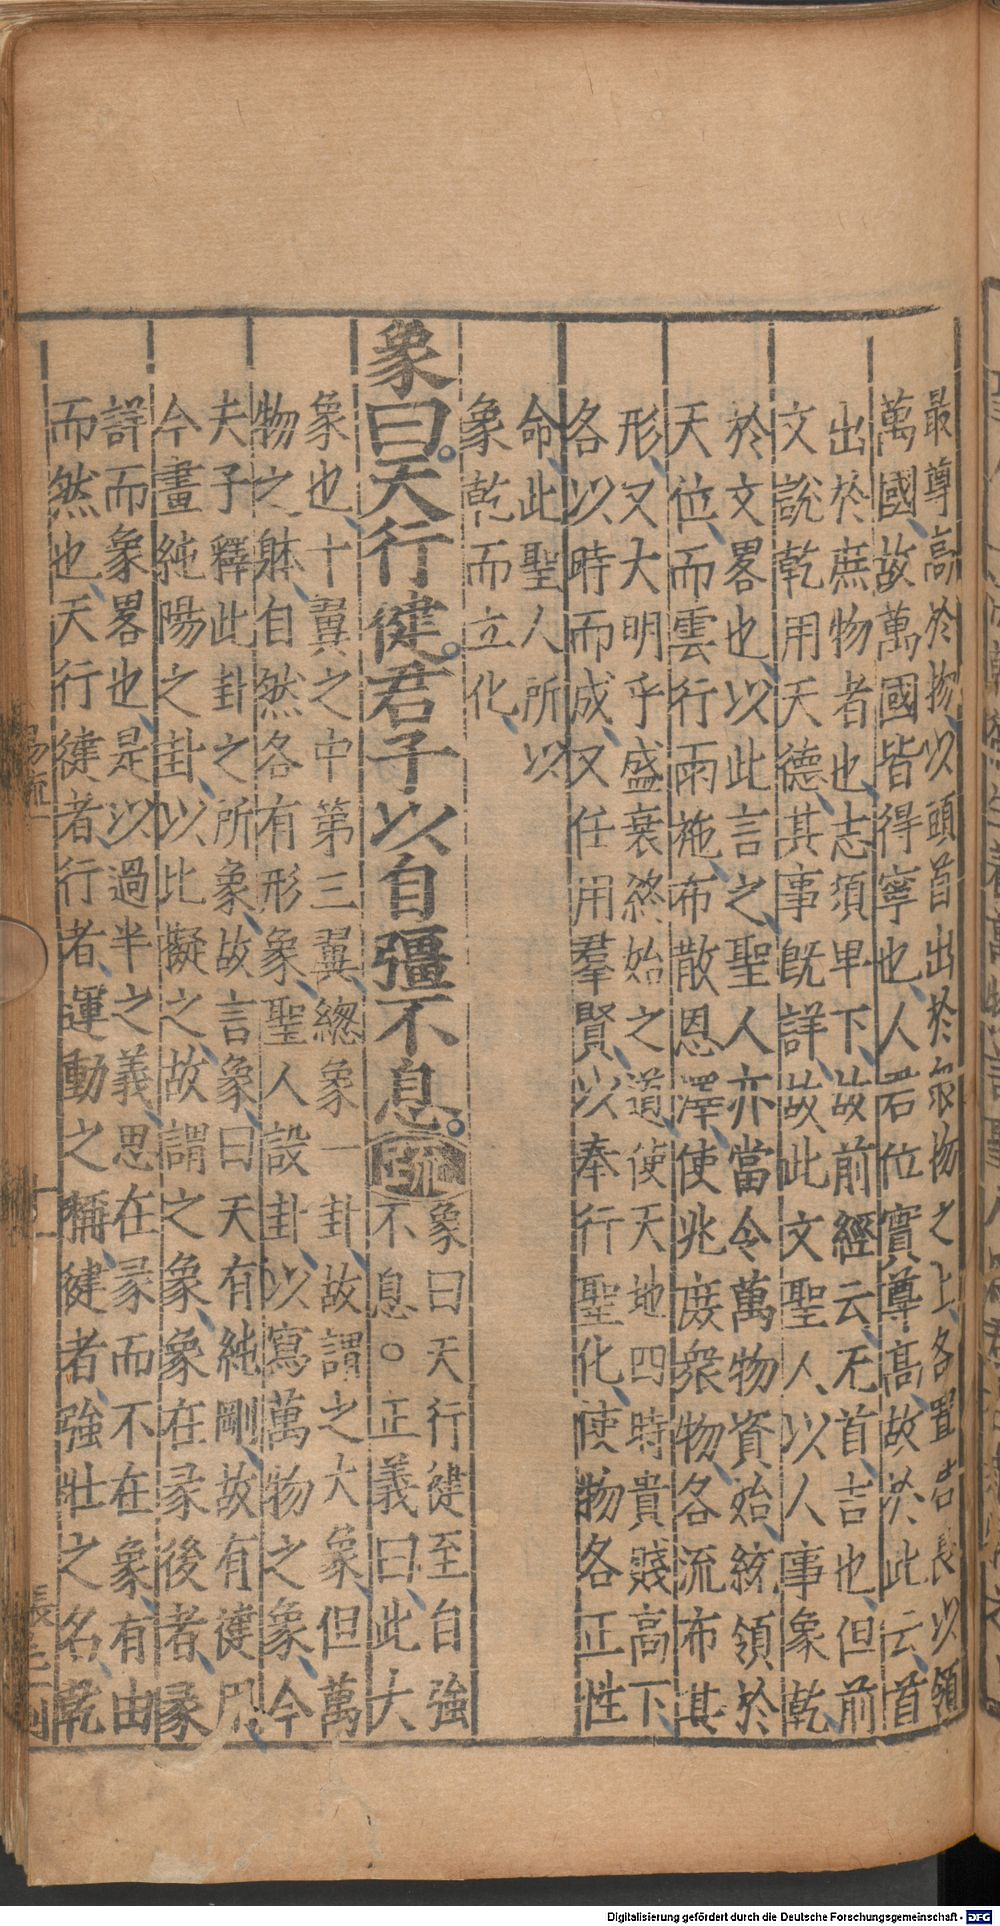 最尊高於物以頭首出於衆物之上各置君長以領
萬國故萬國皆得寧也人君位實尊高故於此云首
出於庶物者也志須卑下故前經云无首吉也但前
文說乾用天德其事既詳故此文聖人以人事象乾
於文畧也以此言之聖人亦當令萬物資始統領於
天位而雲行雨施布散恩澤使兆庶衆物各流布其
形又大明乎盛衰終始之道使天地四時貴賤高下
各以時而成又任用羣賢以奉行聖化使物各正性
命此聖人所以
象乾而立化
象曰天行健君子以自彊不息
疏
象曰天行健至自強
不息○正義曰此大
象也十翼之中第三翼緫象一卦故謂之大象但萬
物之躰自然各有形象聖人設卦以寫萬物之象今
夫子釋此卦之所象故言象曰天有純剛故有健用
今畫純陽之卦以比擬之故謂之象象在彖後者彖
詳而象畧也是以過半之義思在彖而不在象有由
而然也天行健者行者運動之稱健者強壯之名乾
易疏
Digitalisierung gefördert durch die Deutsche Forschungsgemeinschaft - DFG